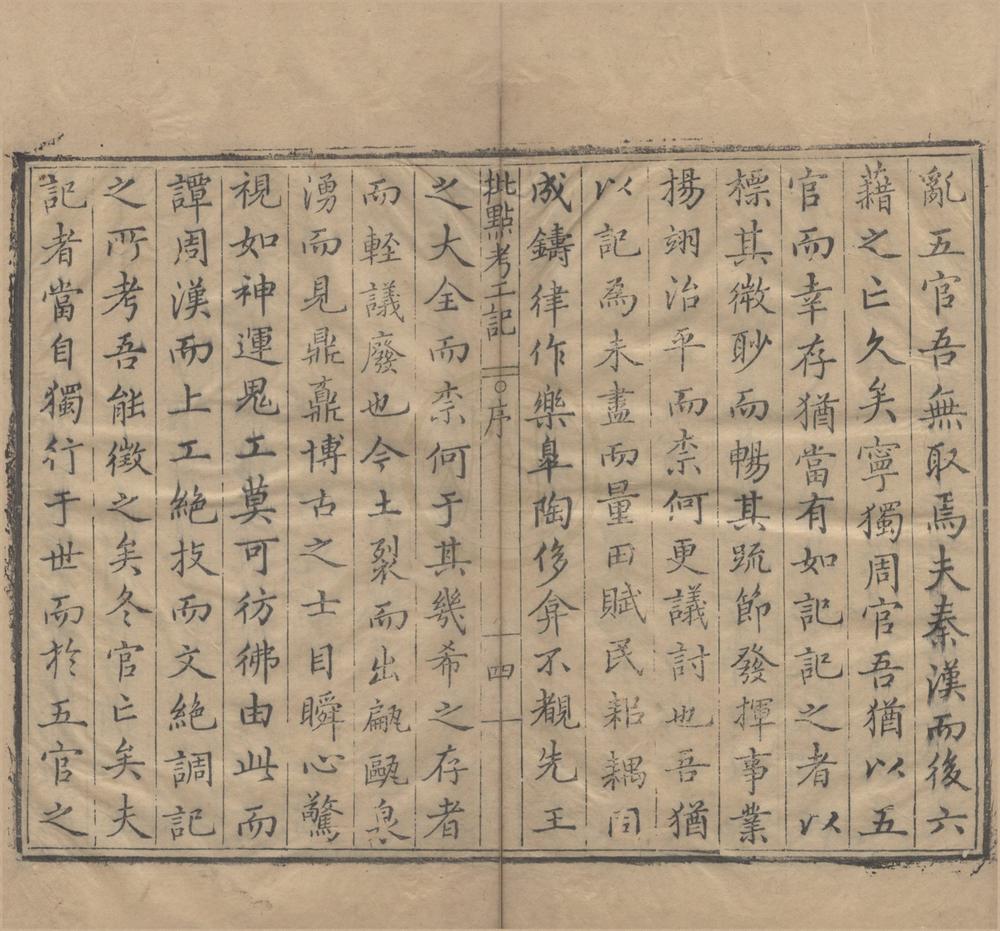 亂五官吾無取焉夫秦漢而後六
藉之亡久矣寧獨周官吾猶以五
官而幸存猶當有如記記之者以
標其微眇而暢其䟽節發揮事業
揚翊治平而柰何更議討也吾猶
以記為未盡而量田賦民耜耦同
成鑄律作樂臯陶侈弇不覩先王
批點考工記 ○序 四
之大全而柰何于其幾希之存者
而輕議廢也今土裂而出甗甌泉
湧而見鼎鼒博古之士目瞬心驚
視如神運鬼工莫可彷彿由此而
譚周漢而上工絶技而文絶調記
之所考吾能徵之矣冬官亡矣夫
記者當自獨行于世而於五官之